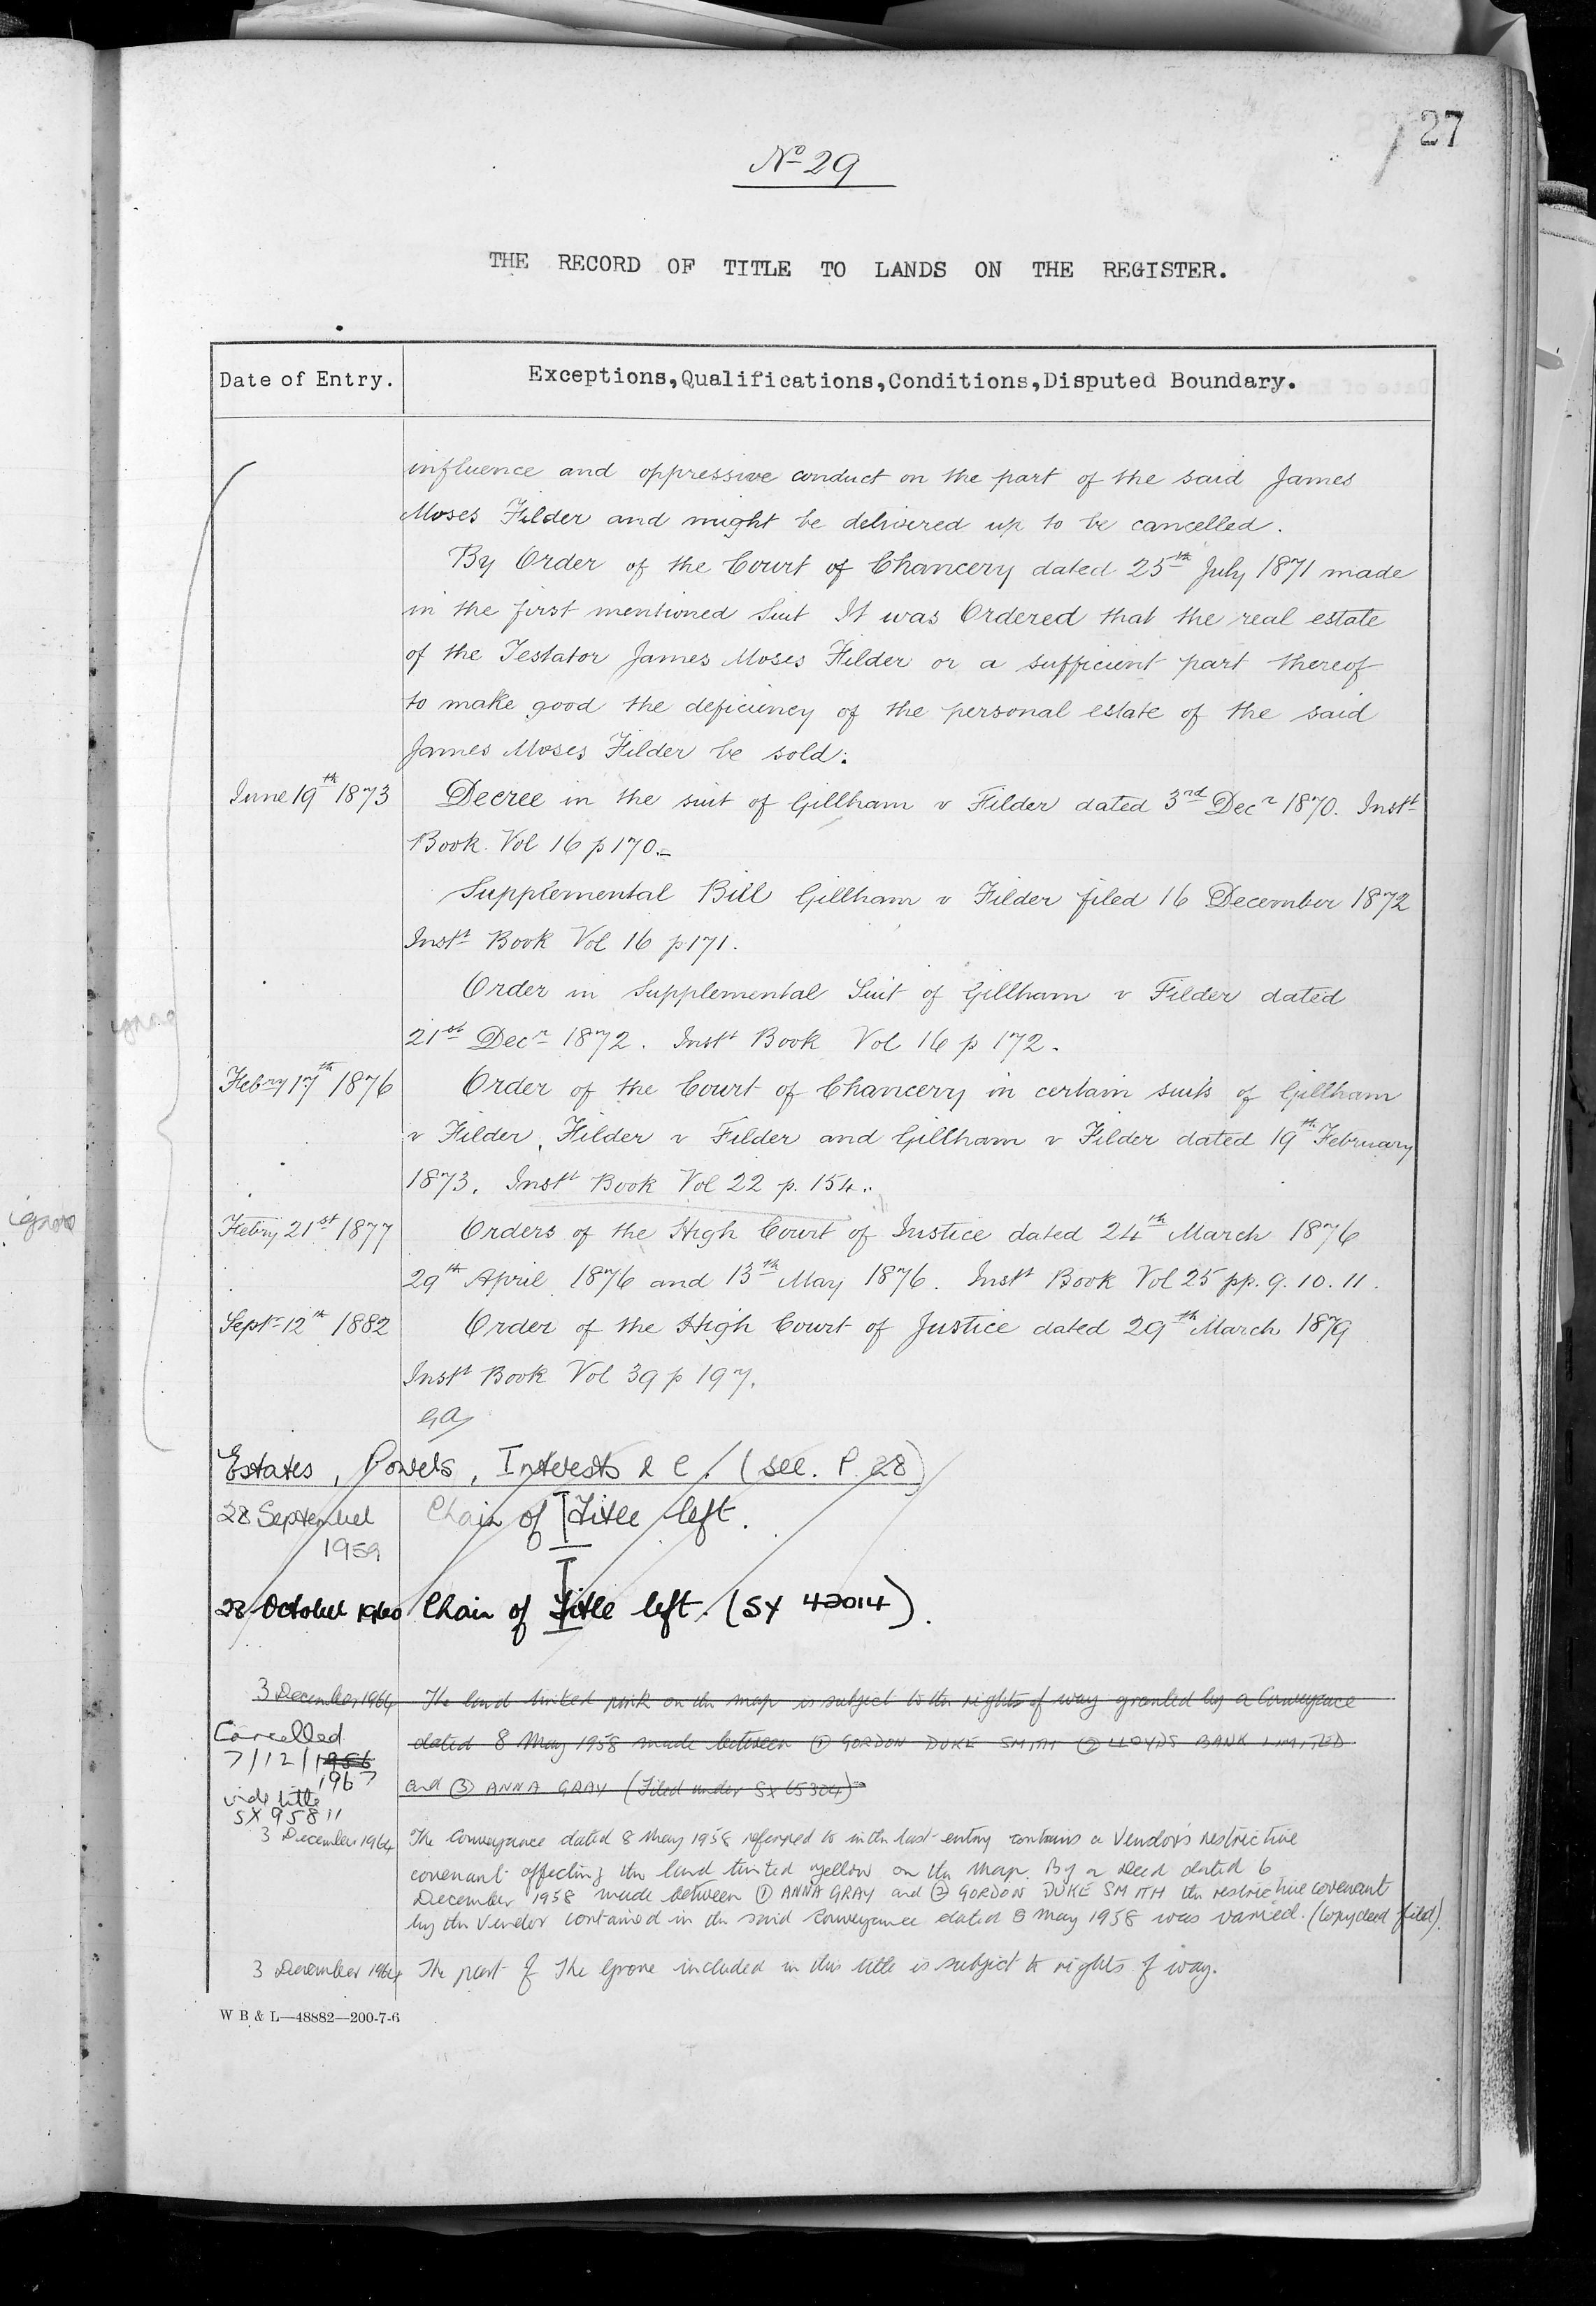 27
No 29
THE RECORD OF TITLE TO LANDS ON THE REGISTER.
Date of Entry. Exceptions,Qualifications,Conditions,Disputed Boundary.
influence and oppressive conduct on the part of the said James
Moses Filder and might be delivered up to be cancelled.
By Order of the Court of Chancery dated 25th July 1871 made
in the first mentioned Suit It was Ordered that the real estate
of the Testator James Moses Filder or a sufficient part thereof
to make good the deficiency of the personal estate of the said
James Moses Filder be sold.
June 19th 1873 Decree in the suit of Gillham v Filder dated 3rd Decr 1870. Instt
Book. Vol 16 p 170.
Supplemental Bill Gillham v Filder filed 16 December 1872
Instt Book Vol 16 p 171.
Order in Supplemental Suit of Gillham v Filder dated
21st Decr 1872. Instt Book Vol 16 p 172.
Febry 17th 1876 Order of the Court of Chancery in certain suits of Gillham
v Filder, Filder v Filder and Gillham v Filder dated 19th February
1873. Instt Book Vol 22 p. 154.
ignore
ignore
Febry 21st 1877 Orders of the High Court of Justice dated 24th March 1876
29th April 1876 and 13th May 1876. Instt Book Vol 25 pp. 9. 10. 11.
Septr 12th 1882 Order of the High Court of Justice dated 29th March 1879
Instt Book Vol 39 p 197.
Estates, Powers, Interests & C. (see. P. 28)
28 September 1959 Chain of Title left.
28 October 1960 Chain of Title left. (SX 42014).
3 December 1964 The land tinted pink on the map is subject to the rights of way granted by a Conveyance
dated 8 May 1958 made between (1) GORDON DUKE SMITH (2) LLOYDS BANK LIMITED
and (3) ANNA GRAY (Filed under SX 65304)
Cancelled
7/12/1956
1967
vide title
SX 95811
3 December 1964 The Conveyance dated 8 May 1958 referred to in the last entry contains a Vendor's restrictive
covenant affecting the land tinted yellow on the map. By a Deed dated 6
December 1958 made between (1) ANNA GRAY and (2) GORDON DUKE SMITH the restrictive covenant
by the Vendor contained in the said Conveyance dated 8 May 1958 was varied. (Copy deed filed).
3 December 1964 The part of The Grove included in this title is subject to rights of way.
W B & L—48882—200-7-6